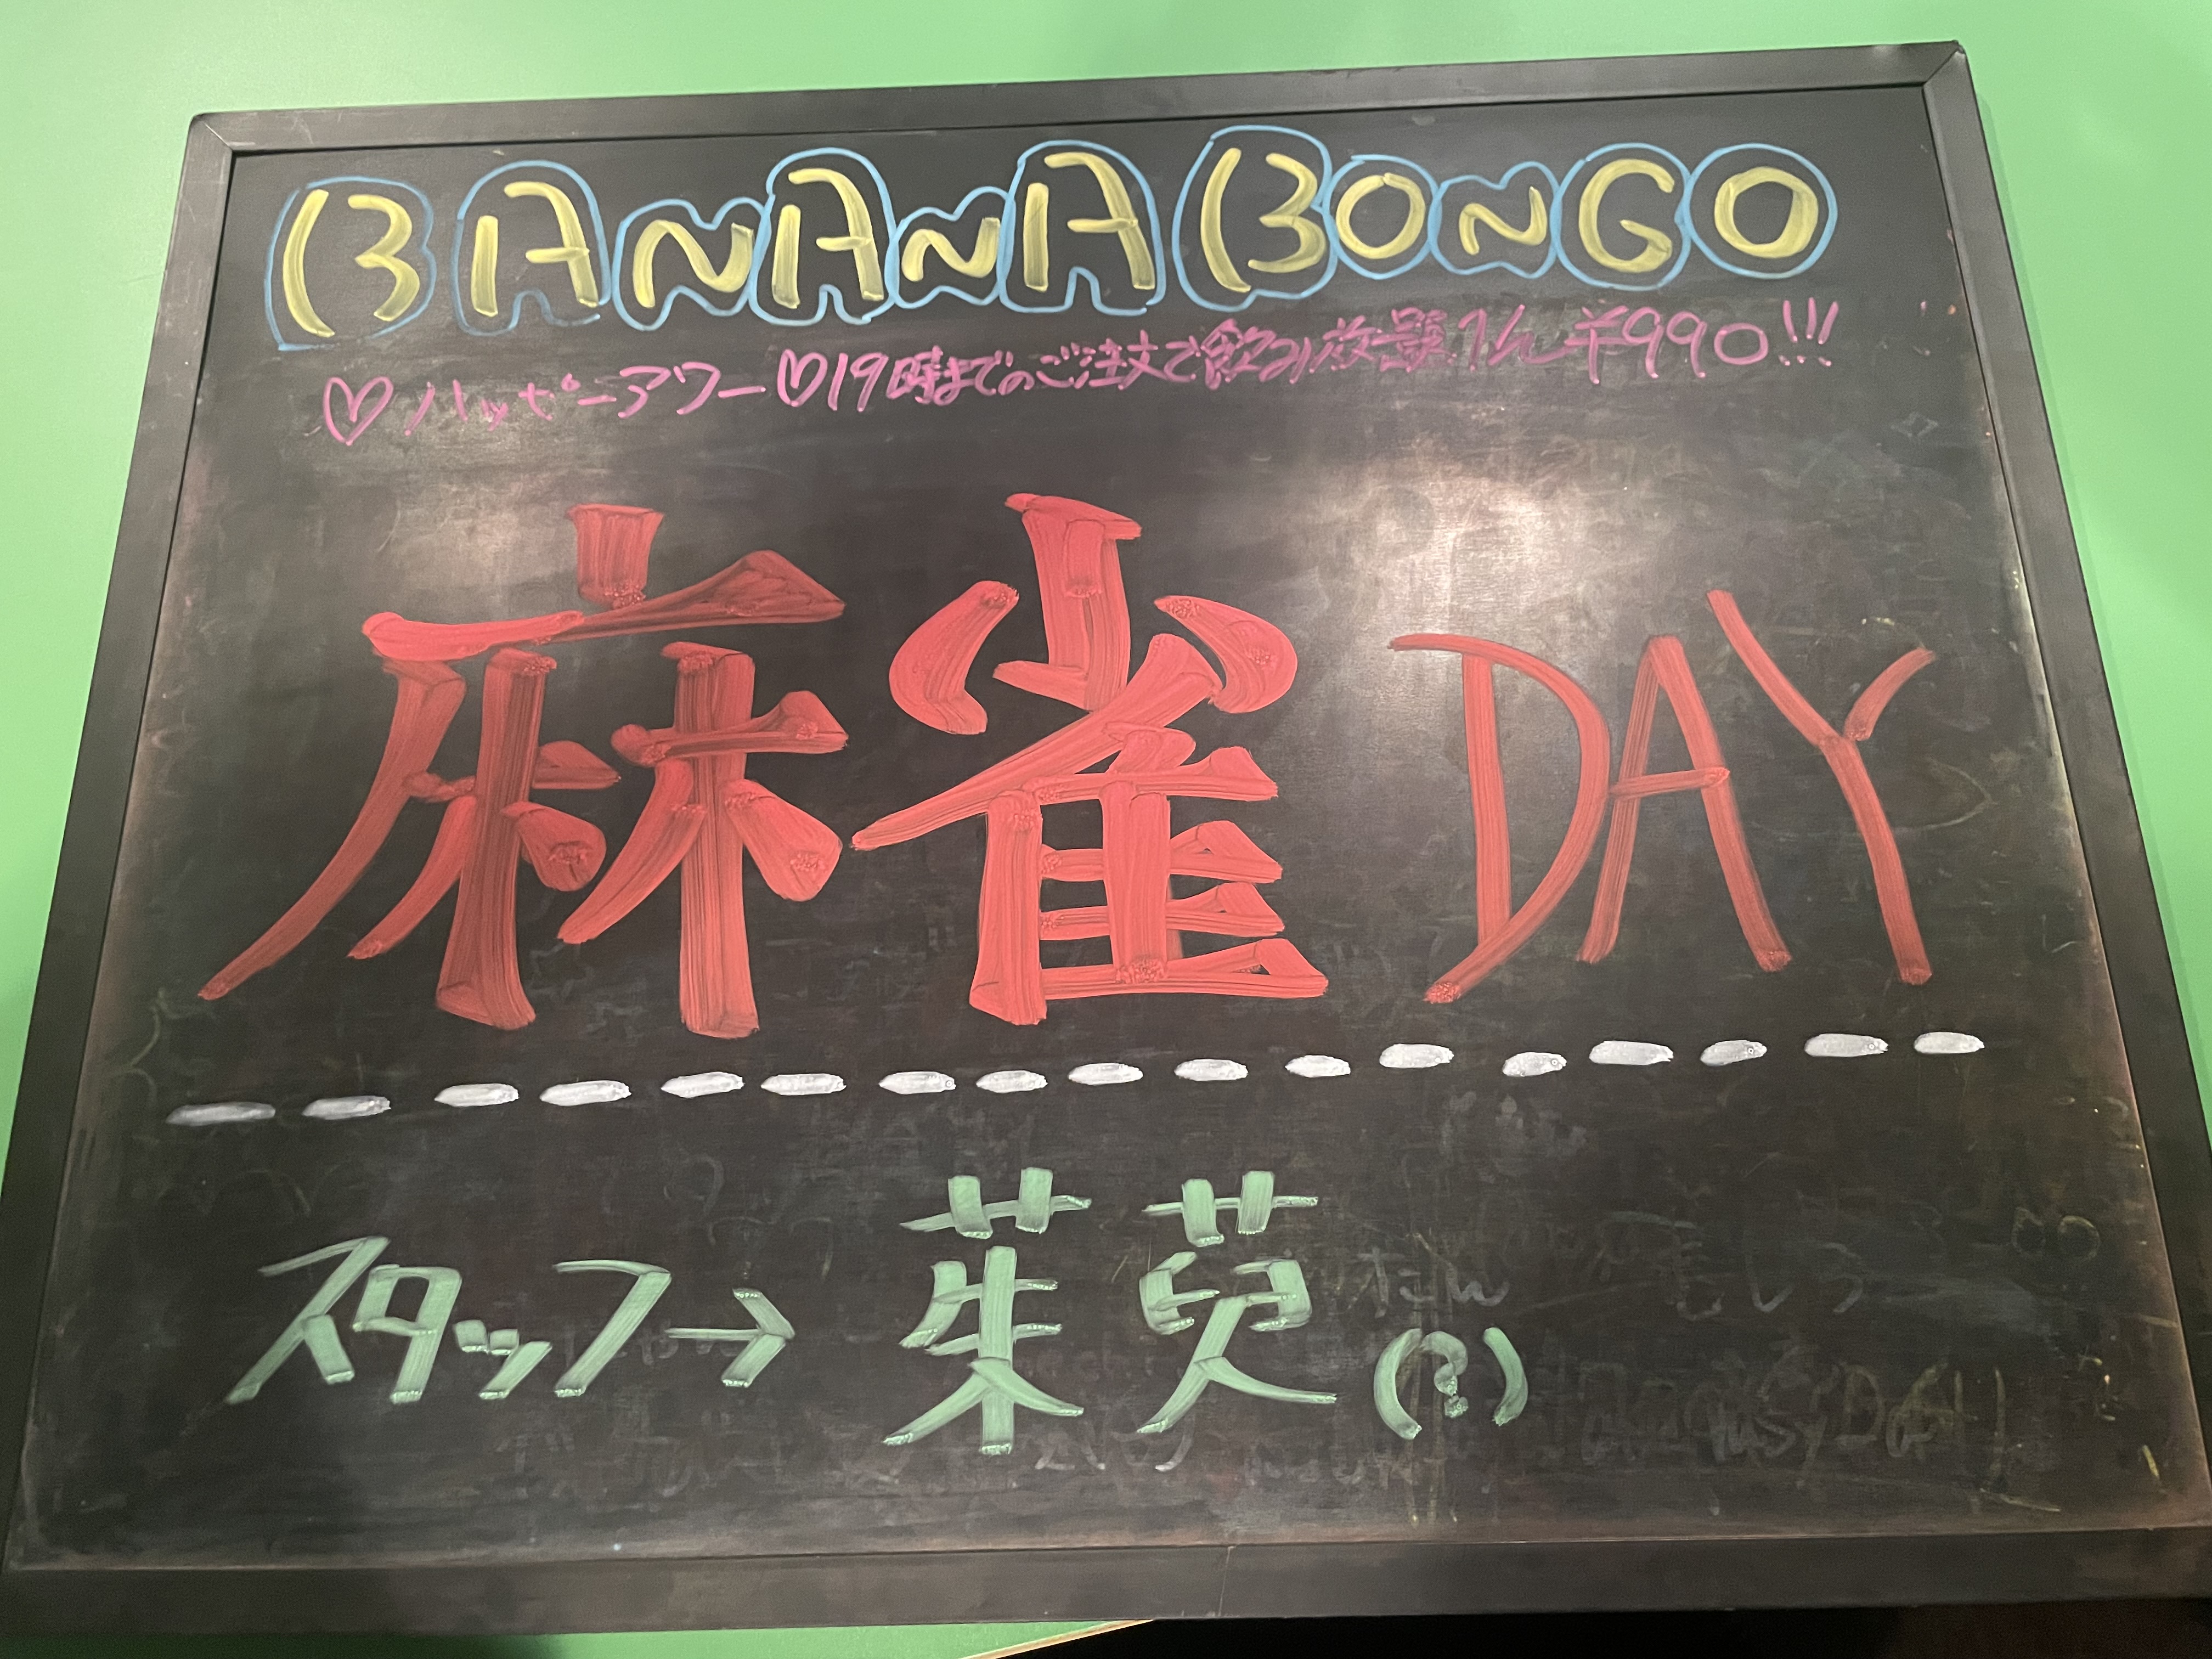 BANANA BONGO
♡ハッピーアワー♡19時までのご注文で飲み放題1h ¥990!!!
麻雀 DAY
スタッフ→ 茱萸(?)